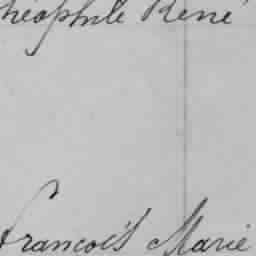 héophile René
François Marie